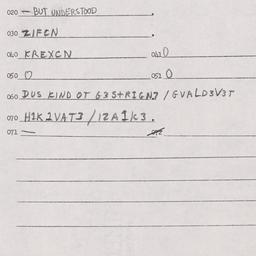 020 — BUT UNDERSTOOD .
030 ZIFCN .
040 KREXCN 041 O
050 O 051 O
060 DUS KIND OT G3S+RIGNJ / GVALD3V3T
070 H1K2VAT3 / IZA1K3 .
071 —